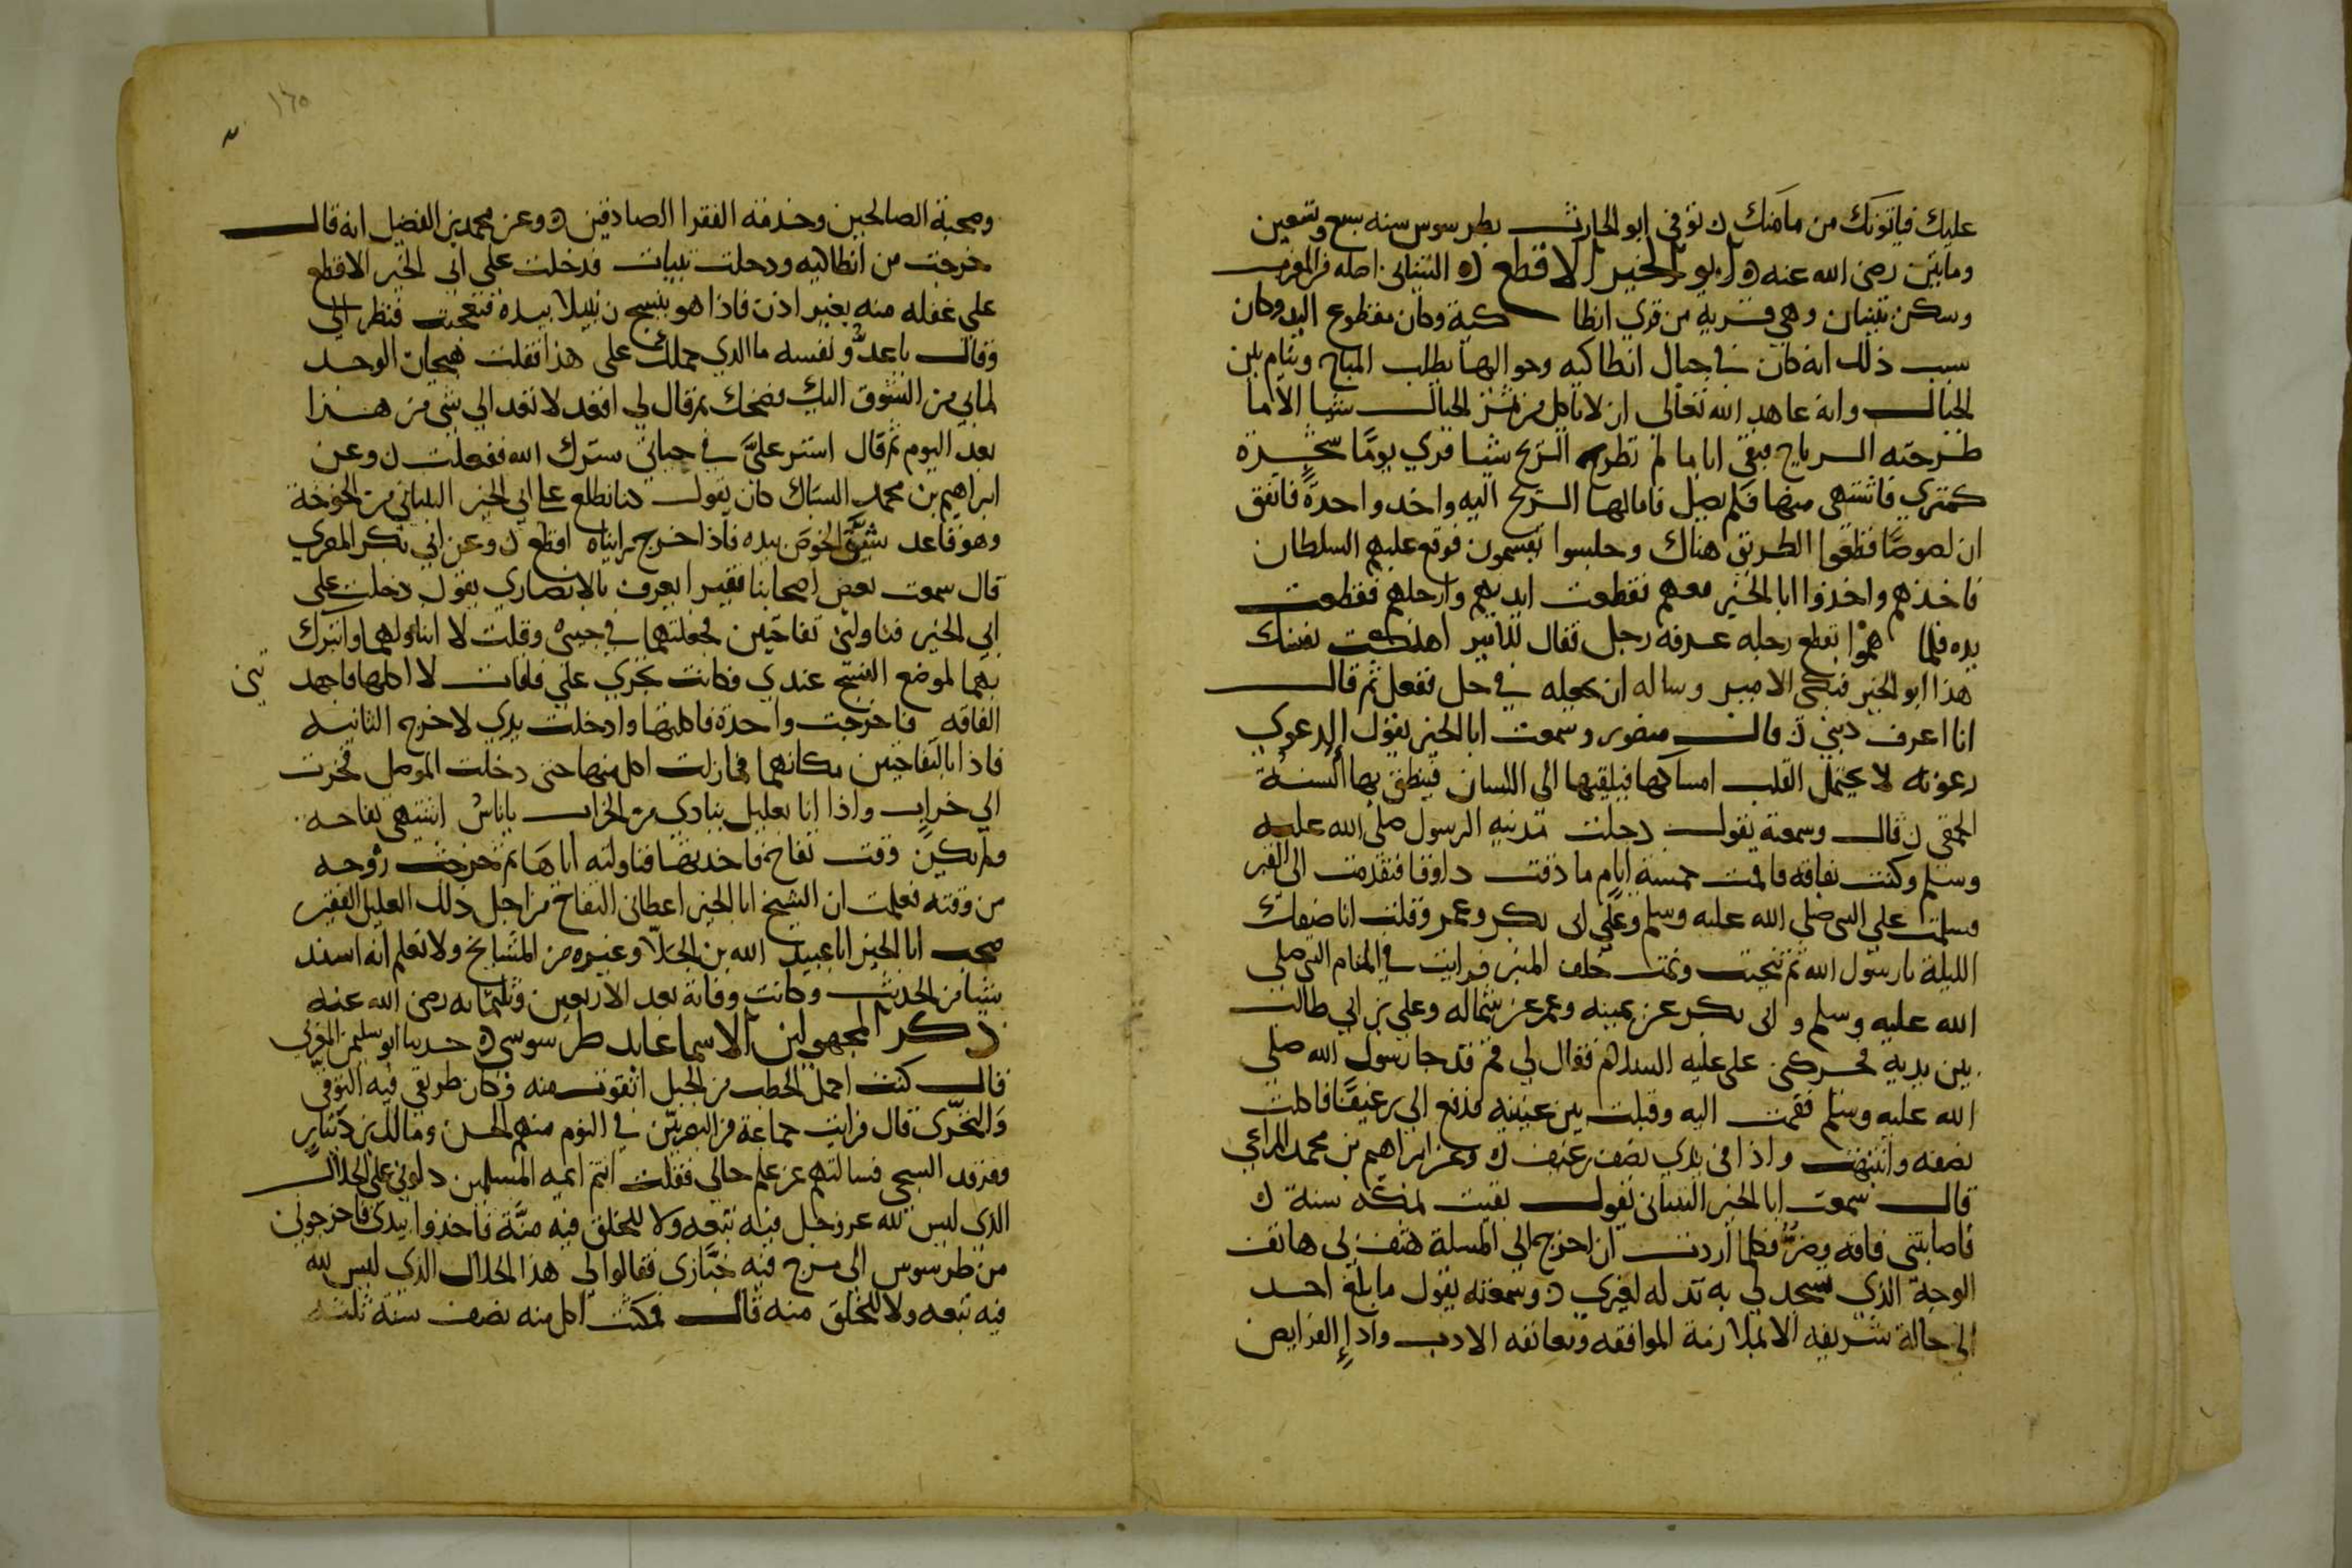 عليك فياتونك من مامنك ن توفي ابو الحارث بطرسوس سنه سبع وتسعين
ومايتين رضي الله عنه ه ابو الخير الاقطع ه التيناتي اصله من المغرب
وسكن تينات وهي قرية من قري انطاكية وكان مقطوع اليد وكان
سبب ذلك انه كان في جبال انطاكيه وحواليها يطلب المباح وينام بين
الجبال وانه عاهد الله تعالى ان لا ياكل من ثمر الجبال شيا الا ما
طرحته الرياح فبقي اياما لم تطرح الريح شيا فري يوما شجرة
كمثري فاشتهى منها فلم يصل فامالها الريح اليه واخد واحدة فاتفق
ان لصوصا قطعوا الطريق هناك وجلسوا يقسمون فوقع عليهم السلطان
فاخذهم واخذوا ابا الخير معهم فقطعت ايديهم وارجلهم فقطعت
يده فلما هموا بقطع رجله عرفه رجل فقال للامير اهلكت نفسك
هذا ابو الخير فبكى الامير وساله ان يجعله في حل ففعل ثم قال
انا اعرف ذنبي ن قال منصور وسمعت ابا الخير يقول الدعوي
رعونه لا يحتمل القلب امساكها فيلقيها الى اللسان فينطق بها السنة
الحمقى ن قال وسمعته يقول دخلت مدينه الرسول صلى الله عليه
وسلم وكنت بفاقه فاقمت خمسة ايام ما ذقت ذواقا فتقدمت الى القبر
وسلمت على النبي صلى الله عليه وسلم وعلى ابي بكر وعمر وقلت انا ضيفك
الليلة يا رسول الله ثم تنحيت ونمت خلف المنبر فرايت في المنام النبي صلى
الله عليه وسلم و ابي بكر عن يمينه وعمر عن شماله وعلي بن ابي طالب
بين يديه فحركني علي عليه السلام فقال لي قم قد جا رسول الله صلى
الله عليه وسلم فقمت اليه وقبلت بين عينيه فدفع الي رغيفا فاكلت
نصفه وانتبهت واذا في يدي نصف رغيف ن وعن ابراهيم بن محمد المراغي
قال سمعت ابا الخير التيناتي يقول بقيت بمكه سنة ن
فاصابتني فاقه وضر فكلما اردت ان اخرج الي المسلة هتف بي هاتف
الوجه الذي تسجد لي به تذله لغيري ن وسمعته يقول ما بلغ احد
الى حالة شريفه الا بملازمة الموافقه ومعانقه الادب واداء الفرايض
١٦٥
وصحبة الصالحين وخدمه الفقرا الصادقين ه وعن محمد بن الفضل انه قال
خرجت من انطاكيه ودخلت تينات فدخلت على ابي الخير الاقطع
على غفله منه بغير اذن فاذا هو ينسج زنبيلا بيده فتعجبت فنظر الي
وقال يا عدو نفسه ما الذي حملك على هذا فقلت هيجان الوجد
لما بي من الشوق اليك فضحك ثم قال لي اقعد لا تعد الي شي من هذا
بعد اليوم ثم قال استر علي في حياتي سترك الله ففعلت ن وعن
ابراهيم بن محمد السباك كان يقول كنا نطلع على ابي الخير التيناتي من الخوخة
وهو قاعد يشق الخوص بيده فاذا خرج رايناه اقطع ن وعن ابي بكر المصري
قال سمعت بعض اصحابنا فقيرا يعرف بالانصاري يقول دخلت على
ابي الخير فناولني تفاحتين فجعلتهما في جيبي وقلت لا اتناولهما واتبرك
بهما لموضع الشيخ عندي وكانت تجري علي فاقات لا اكلها فاجهد تني
الفاقه فاخرجت واحدة فاكلتها وادخلت يدي لاخرج الثانيه
فاذا بالتفاحتين مكانهما فما زلت اكل منهما حتى دخلت الموصل فجزت
الي خراب واذا انا بعليل ينادي من الخراب يا ناس اشتهي تفاحه
ولم يكن وقت تفاح فاخذتهما فناولته اياها ثم خرجت روحه
من وقته فعلمت ان الشيخ ابا الخير اعطاني التفاح من اجل ذلك العليل الفقير
صحب ابا الخير ابا عبيد الله بن الجلا وغيره من المشايخ ولا نعلم انه اسند
شيا من الحديث وكانت وفاته بعد الاربعين وثلثمايه رضي الله عنه
ذكر المجهولين الاسما عابد طرسوسي ه حدثنا ابو سليمن المغربي
قال كنت احمل الحطب من الجبل اتقوت منه وكان طريقي فيه التوقي
والتحري قال فرايت جماعة من البصريين في النوم منهم الحسن ومالك بن دينار
وفرقد السبخي فسالتهم عن علم حالي فقلت انتم ايمه المسلمين دلوني على الحلال
الذي ليس لله عز وجل فيه تبعه ولا للخلق فيه منة فاخذوا بيدي فاخرجوني
من طرسوس الى مرج فيه خبازي فقالوا لي هذا الحلال الذي ليس لله
فيه تبعه ولا للخلق منه قال فمكثت اكل منه نصف سنة ثلثه